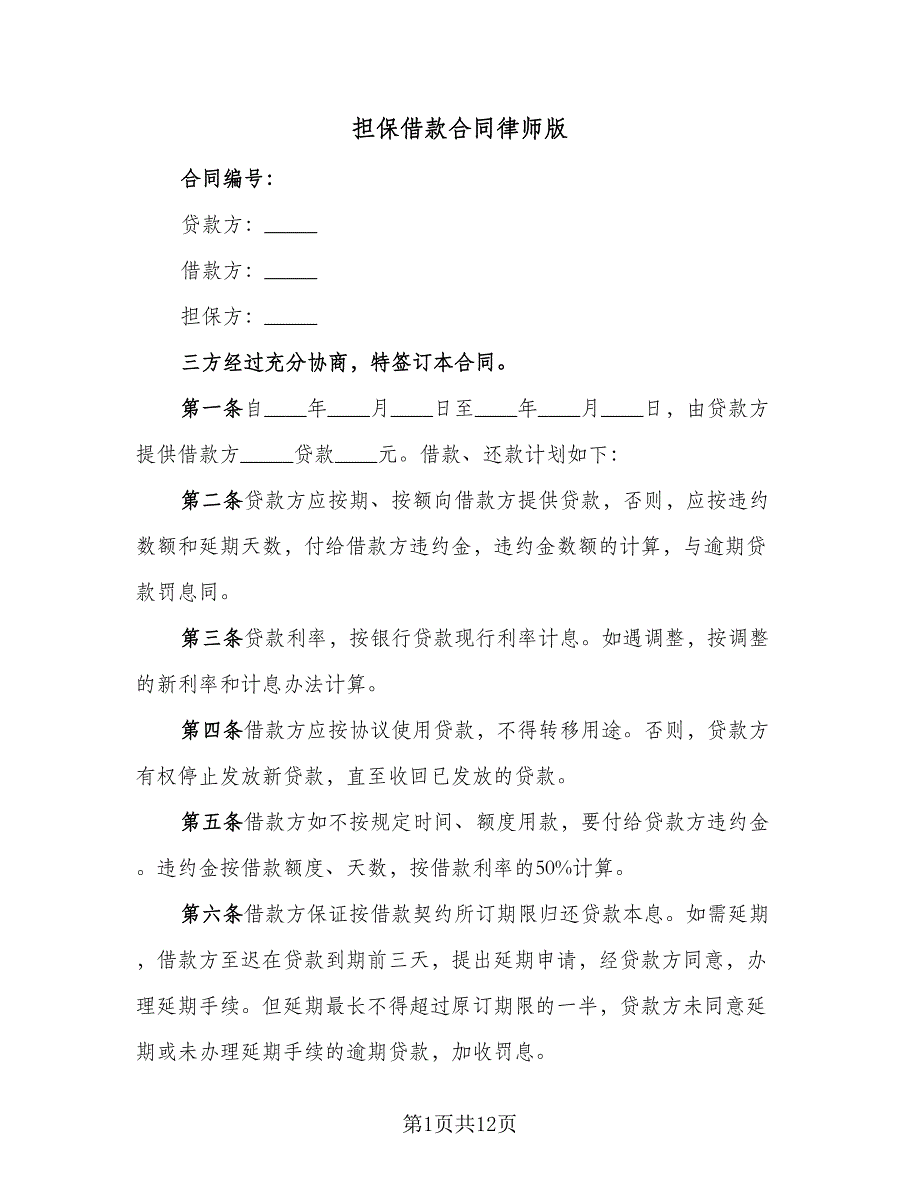 担保借款合同律师版
合同编号：
贷款方：_____
借款方：_____
担保方：_____
三方经过充分协商，特签订本合同。
第一条自____年____月____日至____年____月____日，由贷款方
提供借款方_____贷款____元。借款、还款计划如下：
第二条贷款方应按期、按额向借款方提供贷款，否则，应按违约
数额和延期天数，付给借款方违约金，违约金数额的计算，与逾期贷
款罚息同。
第三条贷款利率，按银行贷款现行利率计息。如遇调整，按调整
的新利率和计息办法计算。
第四条借款方应按协议使用贷款，不得转移用途。否则，贷款方
有权停止发放新贷款，直至收回已发放的贷款。
第五条借款方如不按规定时间、额度用款，要付给贷款方违约金
。违约金按借款额度、天数，按借款利率的50%计算。
第六条借款方保证按借款契约所订期限归还贷款本息。如需延期
，借款方至迟在贷款到期前三天，提出延期申请，经贷款方同意，办
理延期手续。但延期最长不得超过原订期限的一半，贷款方未同意延
期或未办理延期手续的逾期贷款，加收罚息。
第1页共12页